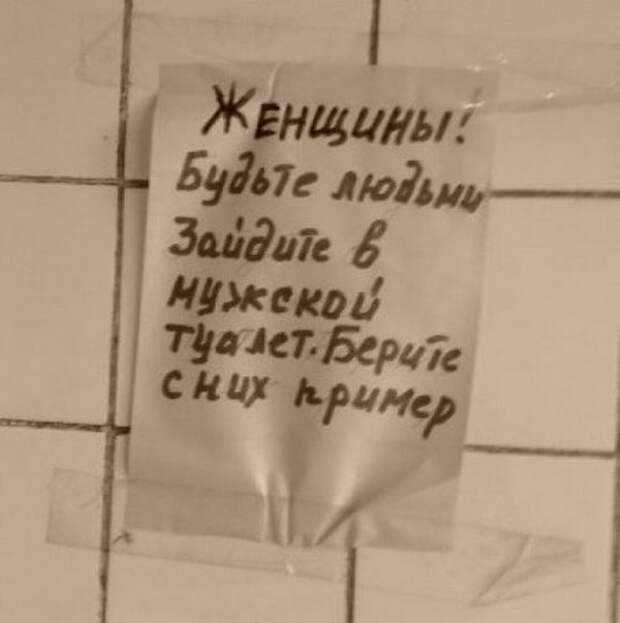 Женщины!
Будьте людьми
Зайдите в
мужской
туалет. Берите
с них пример